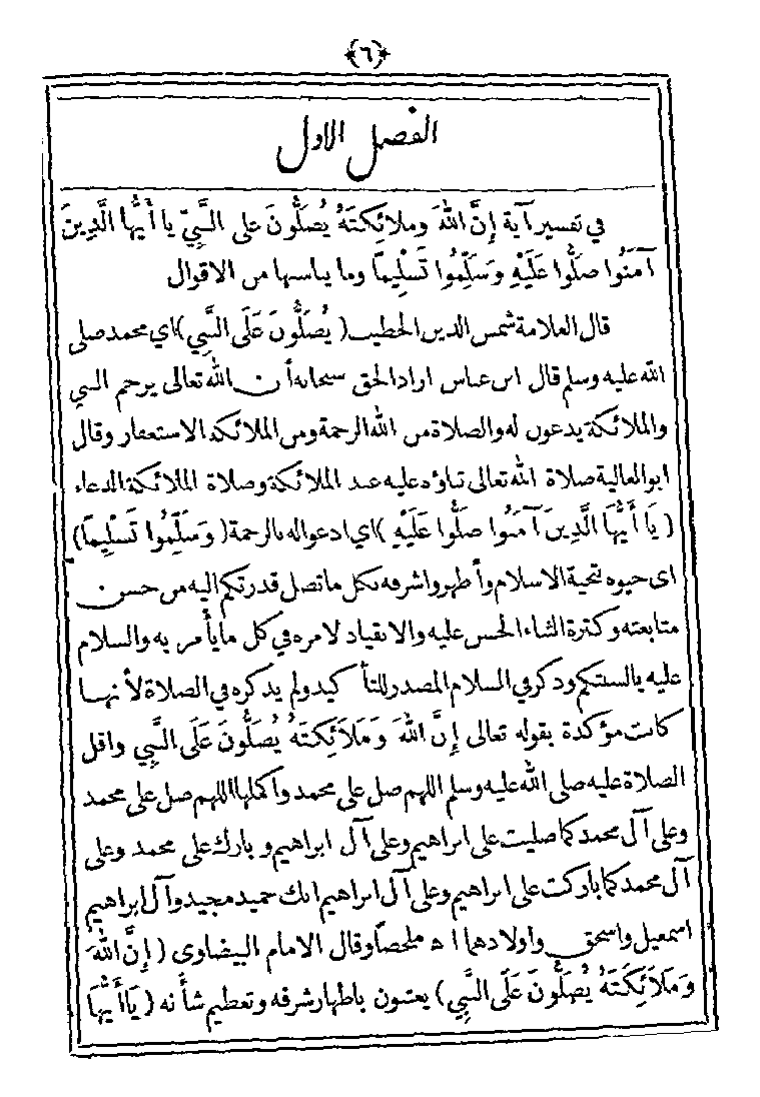 ﴿٦﴾
الفصل الاول
في تفسير آية إِنَّ اللهَ وملائِكتَهُ يُصَلُّونَ على النَّبِيّ يا أَيُّها الَّذِينَ
آمَنُوا صَلُّوا عَلَيْهِ وَسَلِّمُوا تَسْلِيمًا وما يناسبها من الاقوال
قال العلامة شمس الدين الخطيب ( يُصَلُّونَ عَلَى النَّبِي ) اي محمد صلى
الله عليه وسلم قال ابن عباس اراد الحق سبحانه أن الله تعالى يرحم النبي
والملائكة يدعون له والصلاة من الله الرحمة ومن الملائكة الاستغفار وقال
ابو العالية صلاة الله تعالى ثناؤه عليه عند الملائكة وصلاة الملائكة الدعاء
( يَا أَيُّهَا الَّذِينَ آمَنُوا صَلُّوا عَلَيْهِ ) اي ادعوا له بالرحمة ( وَسَلِّمُوا تَسْلِيمًا )
اى حيوه بتحية الاسلام وأظهروا شرفه بكل ما تصل قدرتكم اليه من حسن
متابعته وكثرة الثناء الحسن عليه والانقياد لامره في كل ما يأمر به والسلام
عليه بالسنتكم وذكر في السلام المصدر للتأكيد ولم يذكره في الصلاة لأنها
كانت مؤكدة بقوله تعالى إِنَّ اللهَ وَمَلَائِكَتَهُ يُصَلُّونَ عَلَى النَّبِي واقل
الصلاة عليه صلى الله عليه وسلم اللهم صل على محمد واكملها اللهم صل على محمد
وعلى آل محمد كما صليت على ابراهيم وعلى آل ابراهيم وبارك على محمد وعلى
آل محمد كما باركت على ابراهيم وعلى آل ابراهيم انك حميد مجيد وآل ابراهيم
اسمعيل واسحق واولادهما اه ملخصًا وقال الامام البيضاوى ( إِنَّ اللهَ
وَمَلَائِكَتَهُ يُصَلُّونَ عَلَى النَّبِي ) يعتنون باظهار شرفه وتعظيم شأنه ( يَا أَيُّهَا